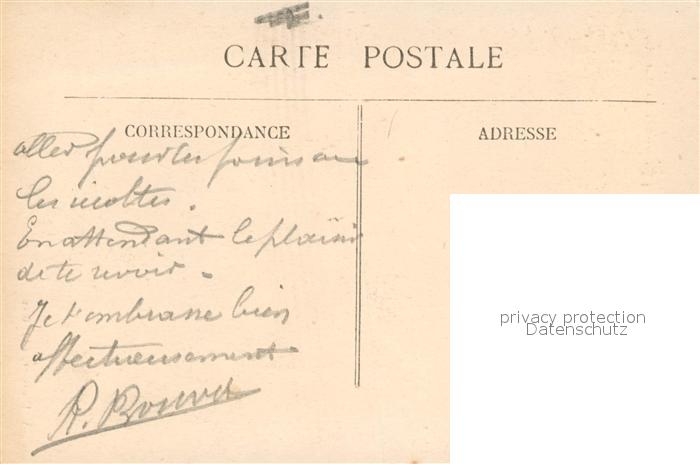 CARTE POSTALE
CORRESPONDANCE
ADRESSE
aller pour les foins ou
les récoltes.
En attendant le plaisir
de te revoir.
Je t'embrasse bien
affectueusement
R.
privacy protection
Datenschutz